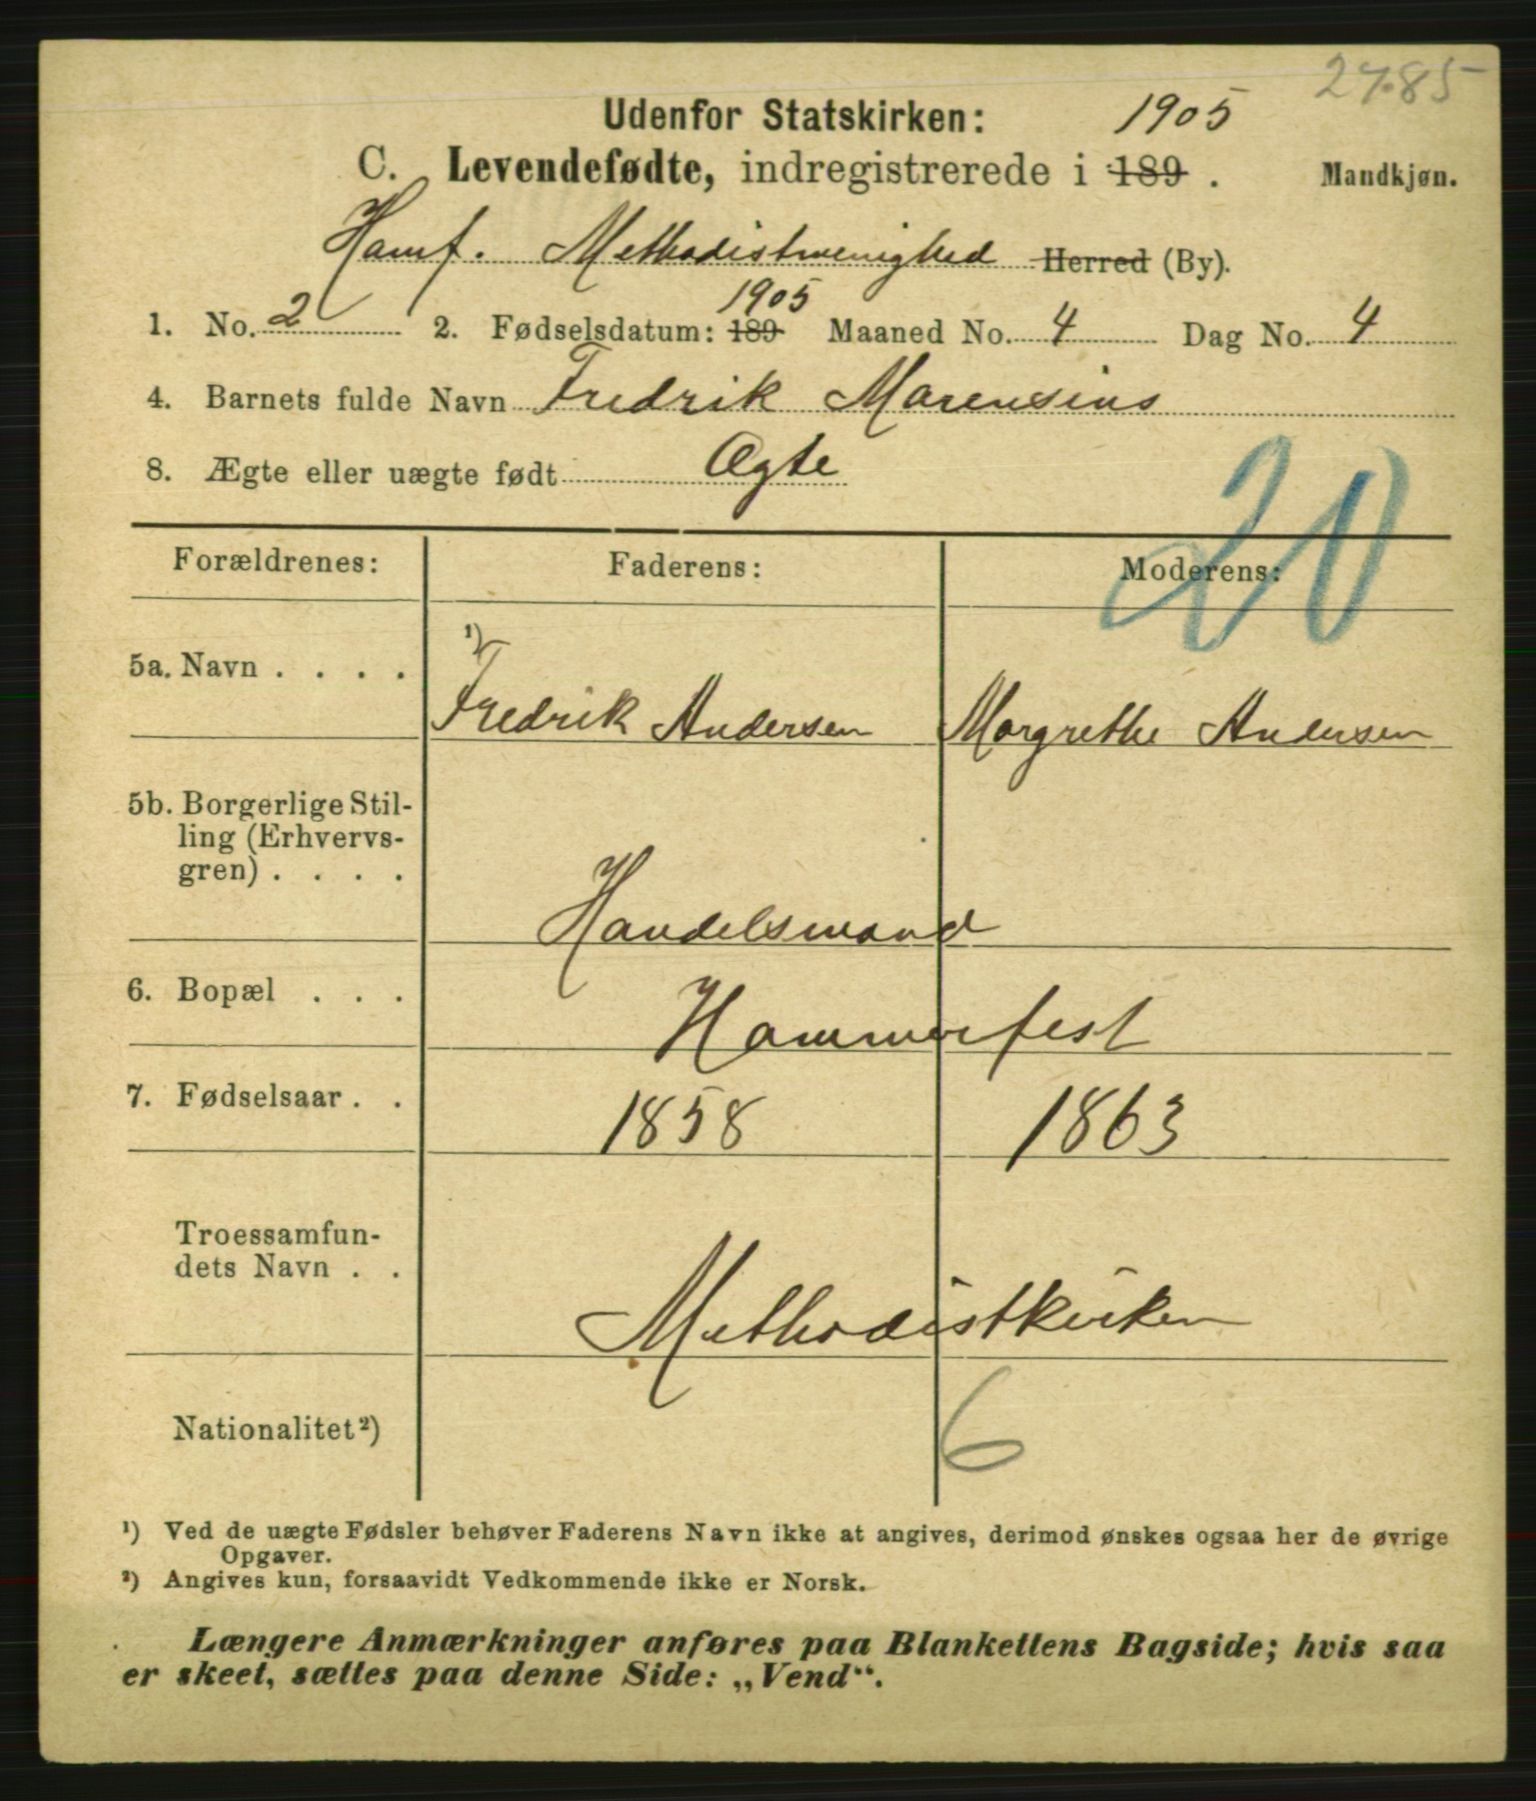 27.85
Udenfor Statskirken: 1905
C. Levendefødte, indregistrerede i 189 . Mandkjøn.
Hamf. Methodistmenighed Herred (By).
1. No. 2 2. Fødselsdatum: 189 1905 Maaned No. 4 Dag No. 4
4. Barnets fulde Navn Fredrik Marensius
8. Ægte eller uægte født Ægte
20
Forældrenes: Faderens: Moderens:
5a. Navn . . . . ¹) Fredrik Andersen Margrethe Andersen
5b. Borgerlige Stil-
ling (Erhvervs-
gren) . . . . Handelsmand
6. Bopæl . . . Hammerfest
7. Fødselsaar . . 1858 1863
Troessamfun-
dets Navn . . Methodistkirken
Nationalitet ²) 6
¹) Ved de uægte Fødsler behøver Faderens Navn ikke at angives, derimod ønskes ogsaa her de øvrige
Opgaver.
²) Angives kun, forsaavidt Vedkommende ikke er Norsk.
Længere Anmærkninger anføres paa Blankettens Bagside; hvis saa
er skeet, sættes paa denne Side: „Vend“.